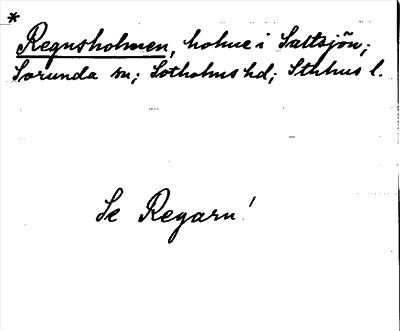 *
Regnsholmen, holme i Saltsjön;
Sorunda sn; Sotholms hd; Sthlms l.
Se Regarn!